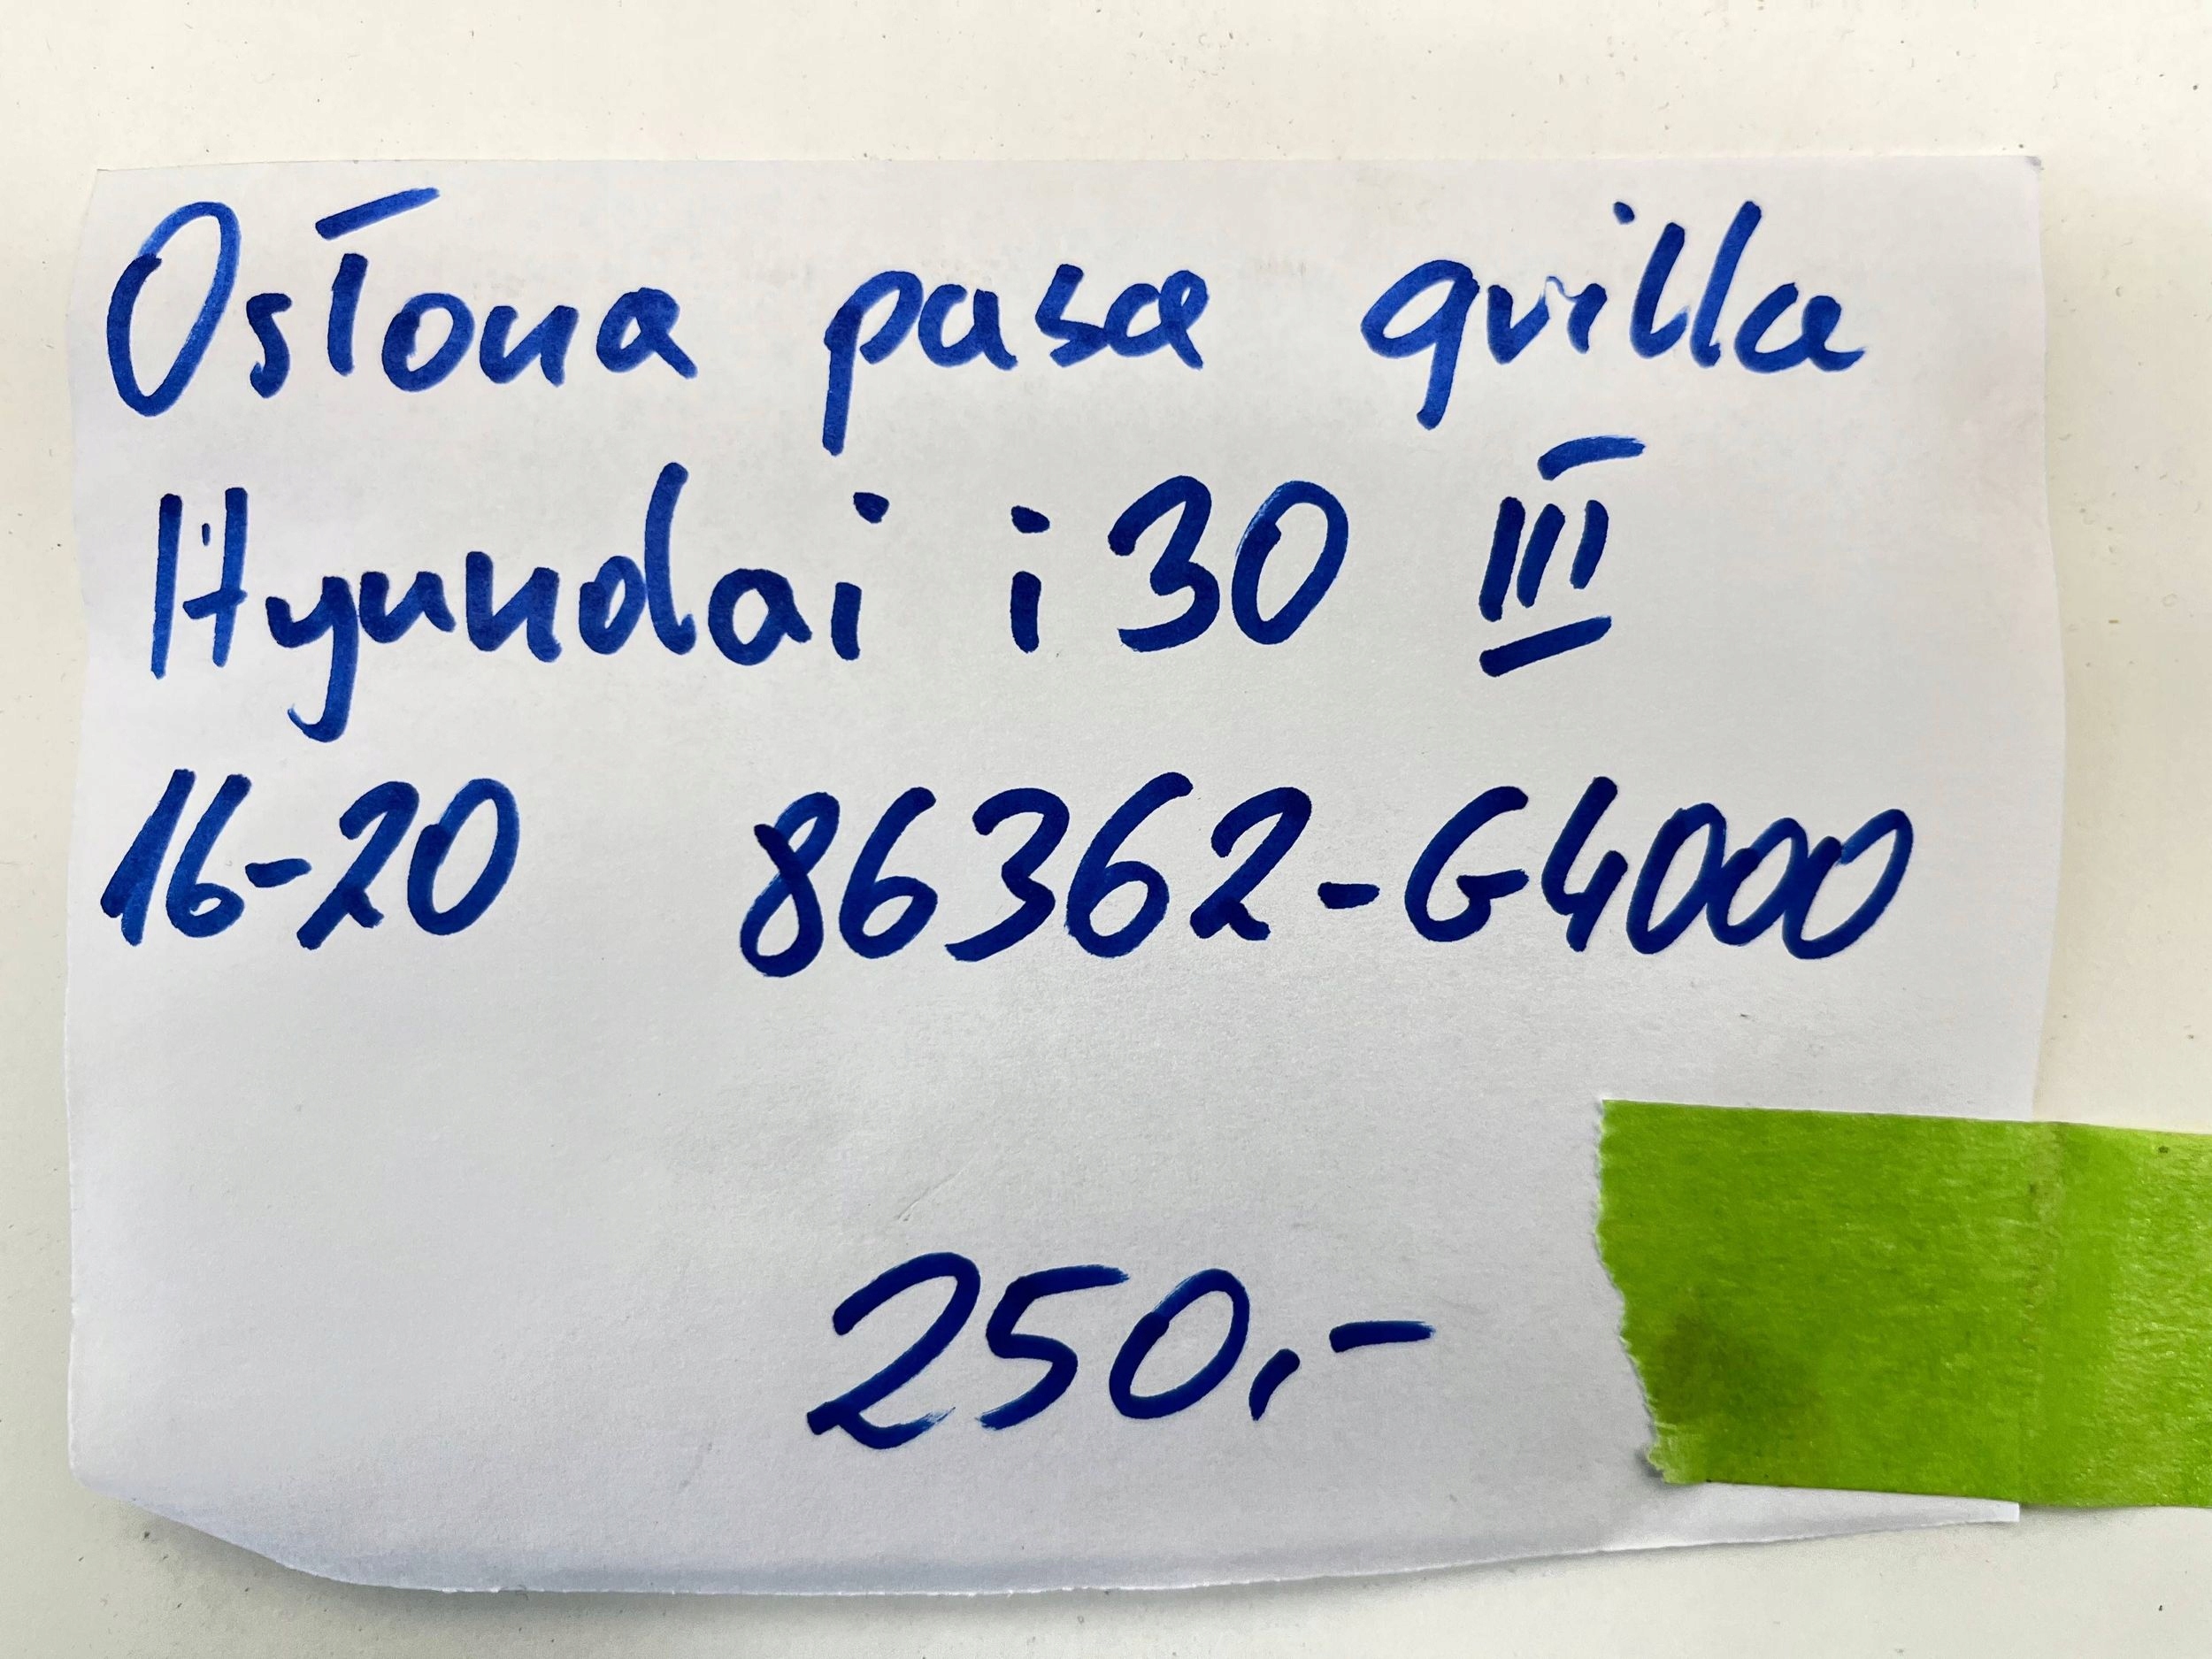 Osłona pasa grilla
Hyundai i30 III
16-20 86362-G4000
250,-